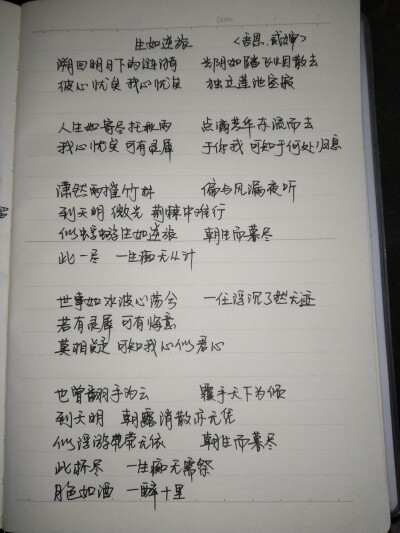 Date:
生如逆旅 <吾恩,贰婶>
溯回明月下的涟漪 光阴如隔飞烟散去
彼心忧矣 我心忧矣 独立莲池空寂
人生如寄尽托秋雨 点滴芳华东流而去
我心忧矣 可有灵犀 于你我 可知于何处归息
潇然雨摧竹林 偏与风漏夜听
到天明 微光 荆棘中难行
似蜉蝣生如逆旅 朝生而暮尽
此一尽 一生痴无从计
世事如水波心荡兮 一任浮沉了然无迹
若有灵犀 可有悔意
莫相 可知我心似君心
也曾翻手为云 覆手天下为倾
到天明 朝露消散亦无凭
似浮游茕茕无依 朝生而暮尽
此杯尽 一生痴无需祭
月色如酒 一醉十里